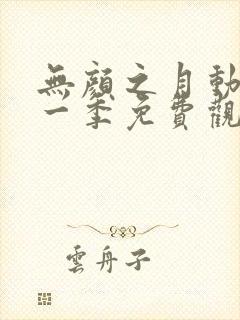 無顏之月動
一季免費觀
雲舟子